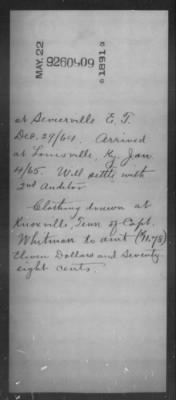 MAY. 22
9260909
1891
at Sevierville E. T.
Dec. 29/64. Arrived
at Louisville, Ky Jan
4/65. Will settle with
2nd Auditor
Clothing drawn at
Knoxville, Tenn of Capt.
Whitman to amt ($11.78)
Eleven Dollars and Seventy
eight cents.